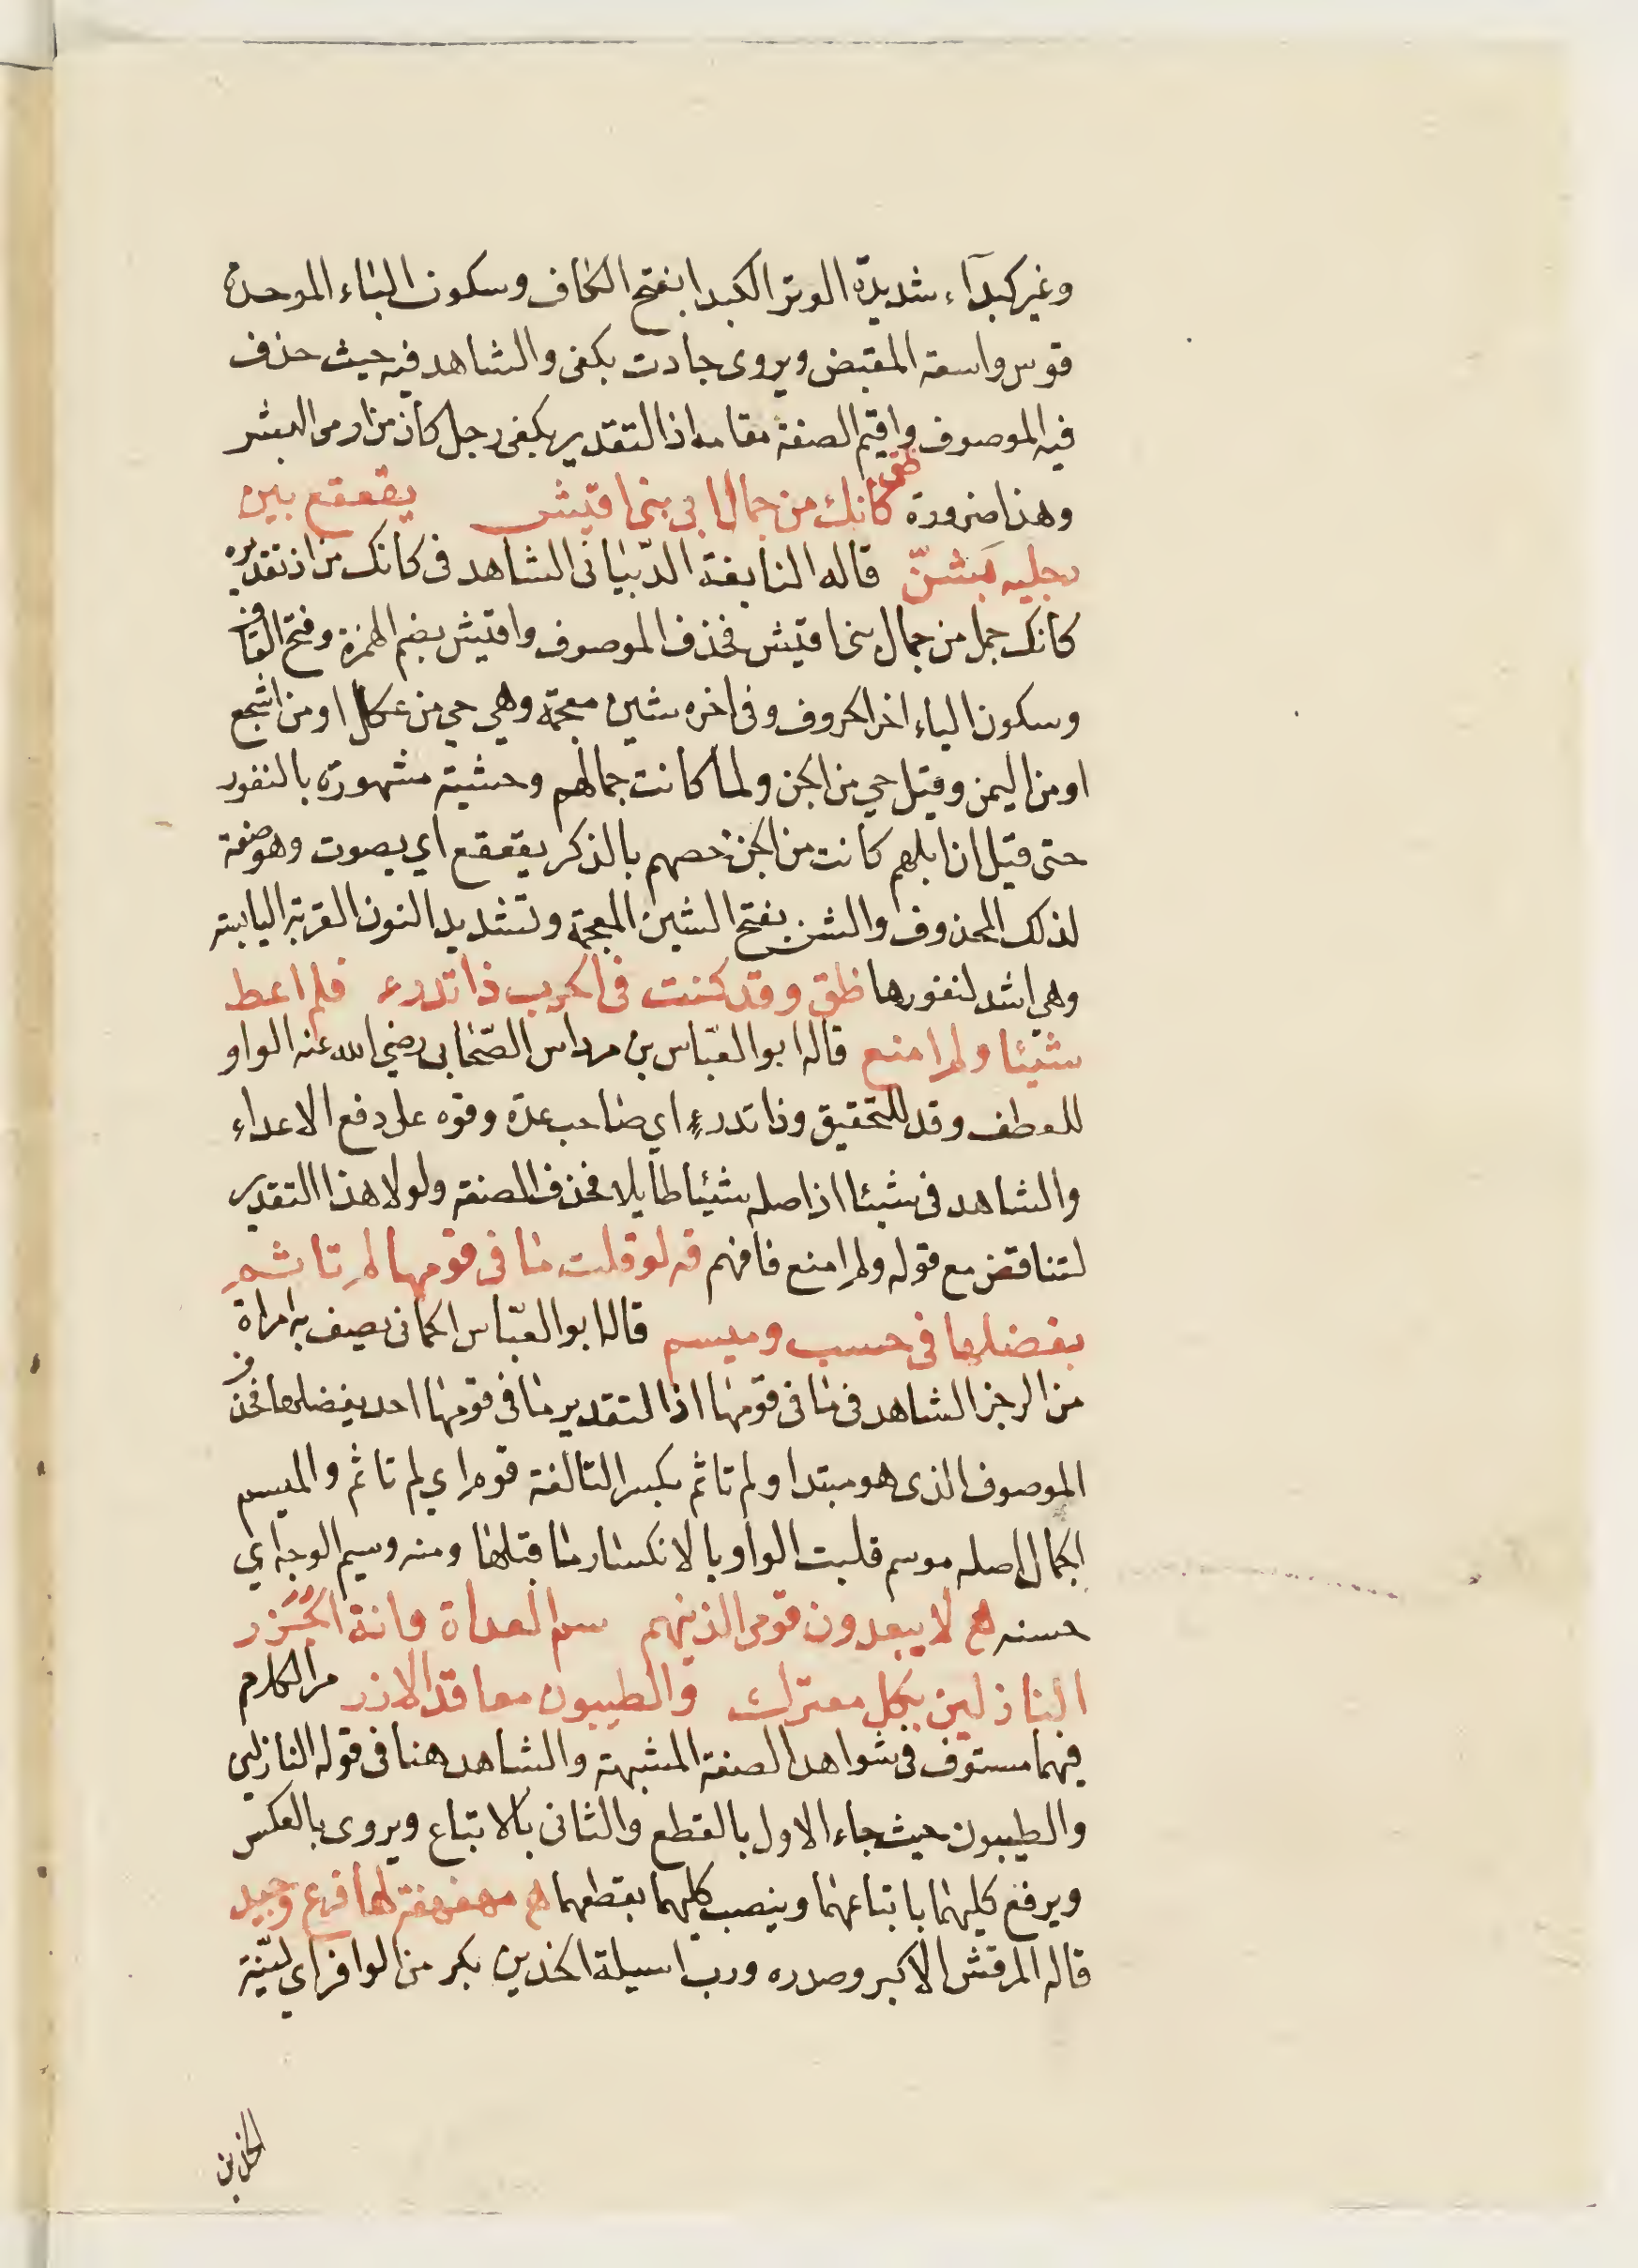 وغير كبدآء شديدة الوتر الكبدا بفتح الكاف وسكون الباء الموحدة
قوس واسعة المقبض ويروى جادت بكفى والشاهد فيه حيث حذف
فيه الموصوف واقيم الصفة مقامه اذ التقدير بكفى رجل كان من ارمى البشر
وهذا ضرورة ظق كانك من جمال ابى بنى اقيش يقعقع بين
رجليه بشنّ قاله النابغة الذبيانى الشاهد فى كانك من اذ تقديره
كانك جمل من جمال بنى اقيش فحذف الموصوف واقيش بضم الهمزة وفتح القاف
وسكون الياء اخر الحروف وفى اخره شين معجمة وهي حي من عكل او من اشجع
او من اليمن وقيل حي من الجن ولما كانت جمالهم وحشية مشهورة بالنفور
حتى قيل ان ابلهم كانت من الجن خصهم بالذكر يقعقع اي يصوت وهو صفة
لذلك المحذوف والشن بفتح الشين المعجمة وتشديد النون القربة اليابسة
وهي اشد لنفورها ظق وقد كنت فى الحرب ذا تدرء فلم اعط
شيئا ولم امنع قاله ابو العباس بن مرداس الصحابى رضي الله عنه الواو
للعطف وقد للتحقيق وذا تدرءٍ اي صاحب عدة وقوه على دفع الاعداء
والشاهد فى شيئا اذ اصله شيئا طايلا فحذف الصفة ولولا هذا التقدير
لتناقض مع قوله ولم امنع فافهم قه لو قلت ما فى قومها لم تاثم
بفضلها فى حسب وميسم قاله ابو العباس الحمانى يصف به امراة
من الرجز الشاهد فى ما فى قومها اذ التقدير ما فى قومها احد يفضلها فحذف
الموصوف الذى هو مبتدا ولم تاثم بكسر التا لغة قوم اي لم تاثم والميسم
الجمال اصله موسم قلبت الواو يا لانكسار ما قبلها ومنه وسيم الوجه اي
حسنه هع لا يبعدون قومى الذينهم سم العداة وافة الجُزُر
النازلين بكل معترك والطيبون معاقد الازر مر الكلام
فيهما مستوف فى شواهد الصفة المشبهة والشاهد هنا فى قوله النازلين
والطيبون حيث جاء الاول بالقطع والثانى بالاتباع ويروى بالعكس
ويرفع كليهما باتباعهما وينصب كليهما بقطعهما هع مهفهفة لها فرع وجيد
قاله المرقش الاكبر وصدره ورب اسيلة الخدين بكر من الوافر اي لينة
الخدين